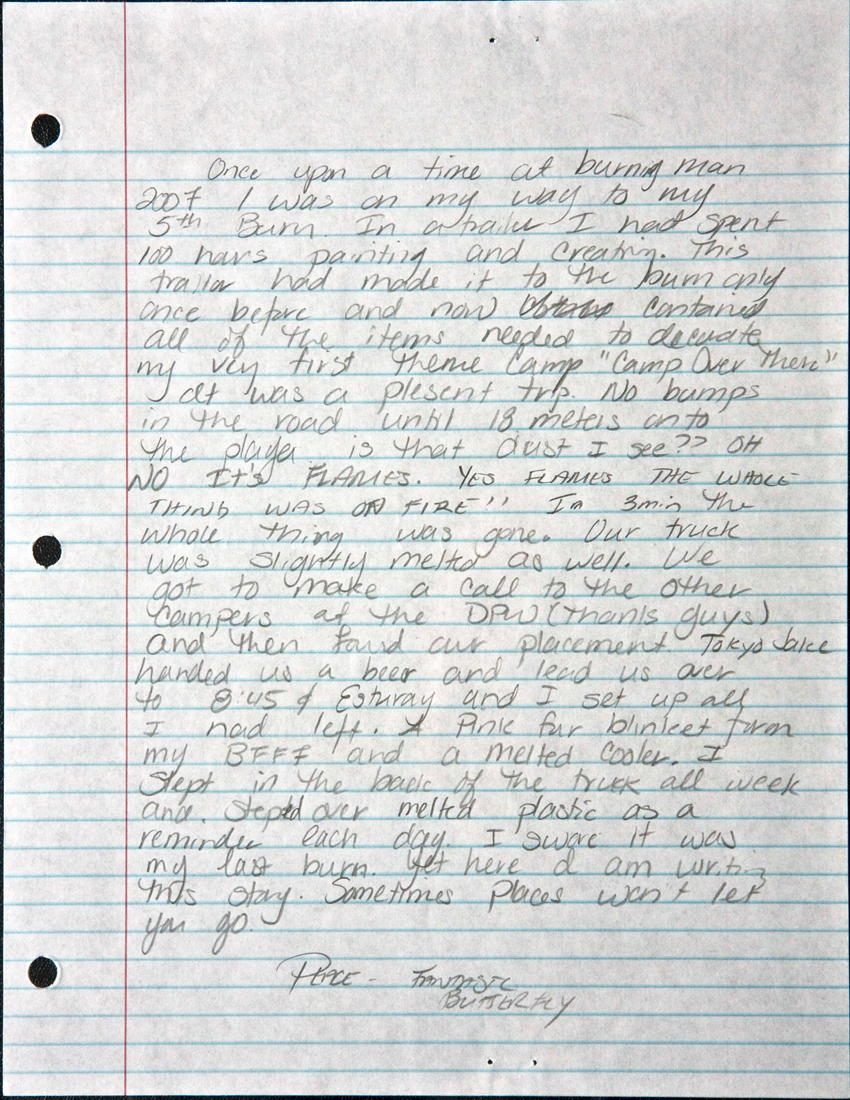 Once upon a time at burning man
2007 I was on my way to my
5th Burn. In a trailer I had spent
100 hours painting and creating. This
trailor had made it to the burn only
once before and now contained
all of the items needed to decorate
my very first theme camp "Camp Over There"
It was a plesent trip. No bumps
in the road until 18 meters onto
the playa. is that dust I see?? OH
NO It's FLAMES. YES FLAMES THE WHOLE
THING WAS ON FIRE!! In 3min the
whole thing was gone. Our truck
was slightly melted as well. We
got to make a call to the other
campers at the DPW (thanks guys)
and then found our placement Tokyo Jake
handed us a beer and lead us over
to 8:45 & Esturay and I set up all
I had left. A Pink fur blinket from
my BFFF and a melted cooler. I
slept in the back of the truck all week
and. Stepted over melted plastic as a
reminder each day. I swore it was
my last burn. Yet here I am writing
this story. Sometimes places won't let
you go.
PEACE - FANTASTIC
BUTTERFLY